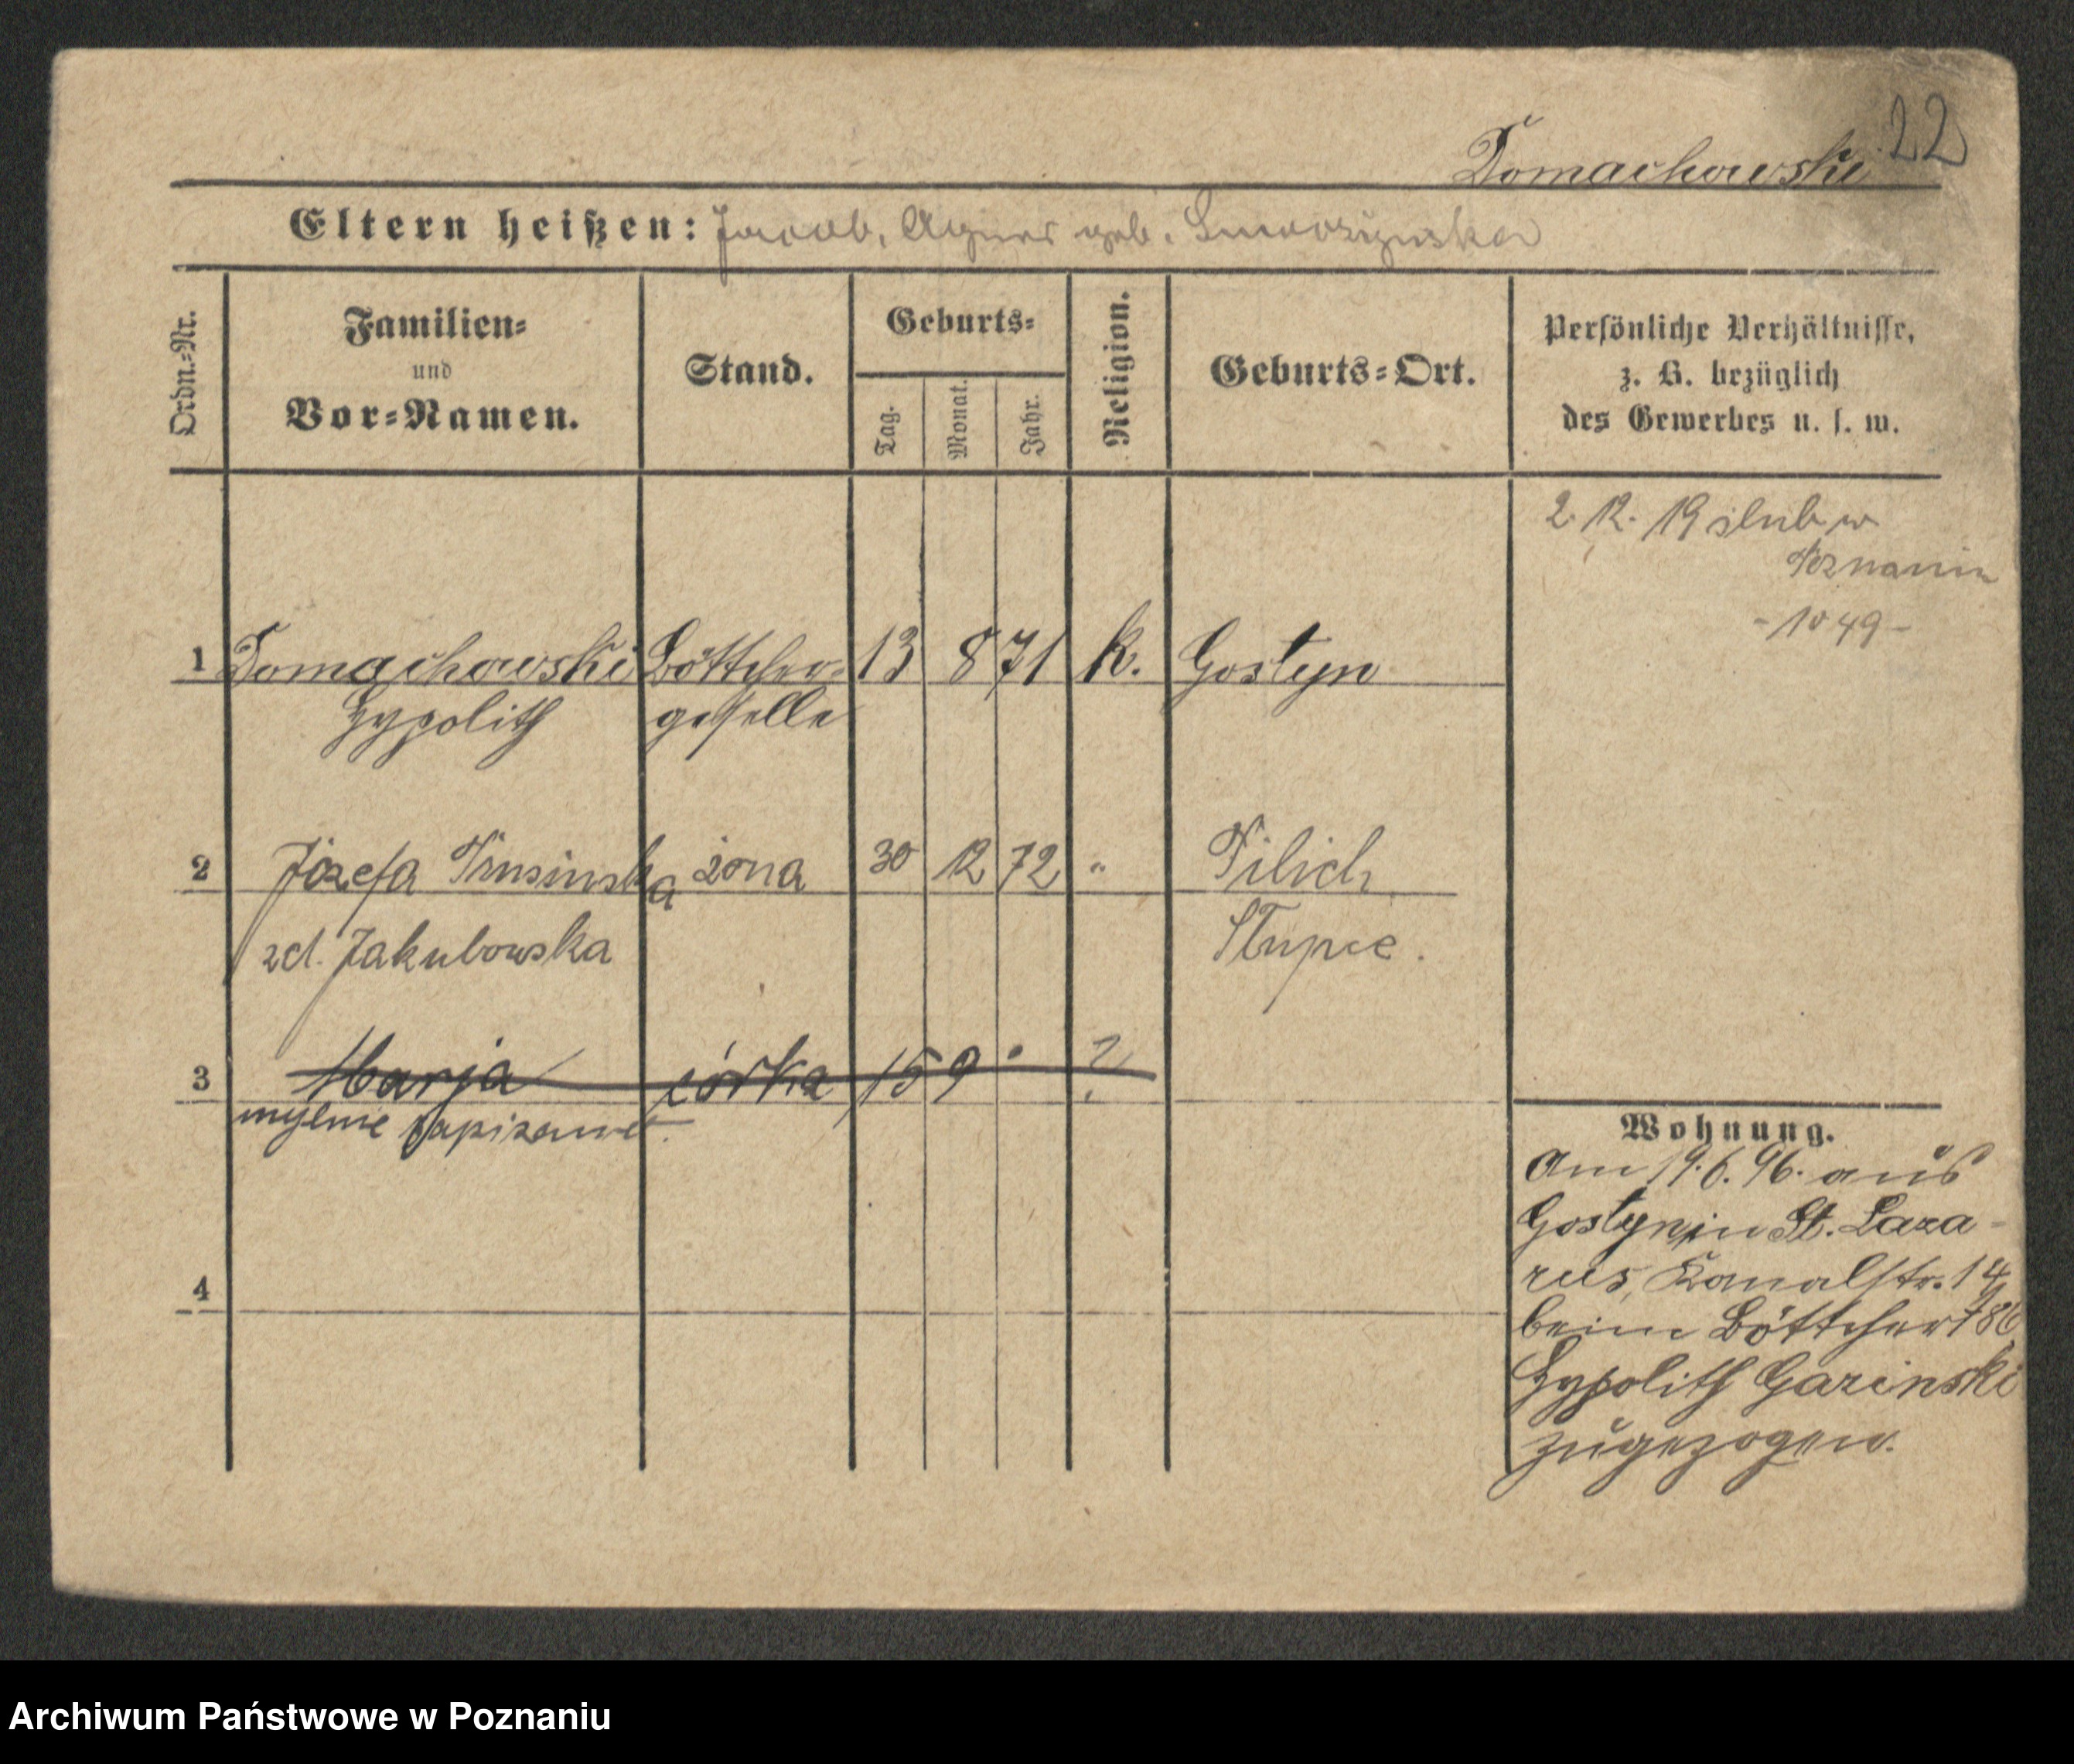 22
Domachowski
Eltern heißen: Jacob, Agnes geb.
Ordn.=Nr.
Familien=
und
Vor=Namen.
Stand.
Geburts=
Tag.
Monat.
Jahr.
Religion.
Geburts=Ort.
Persönliche Verhältnisse,
z. B. bezüglich
des Gewerbes u. s. w.
2. 12. 19 ślub w
Poznaniu
- 1049 -
1 Domachowski Böttcher= 13 8 71 k. Gostyn
Hypolith geselle
2 Józefa żona 30 12 72 "
zd. Jakubowska Słupce.
3 Marja córka 15 9 ?
mylnie zapisane.
4
Wohnung.
Am 19.6.96. aus
Gostyn in St. Laza-
rus, Kanalstr. 14
beim Böttcher 786
Hypolith Garinski
zugezogen.
Archiwum Państwowe w Poznaniu